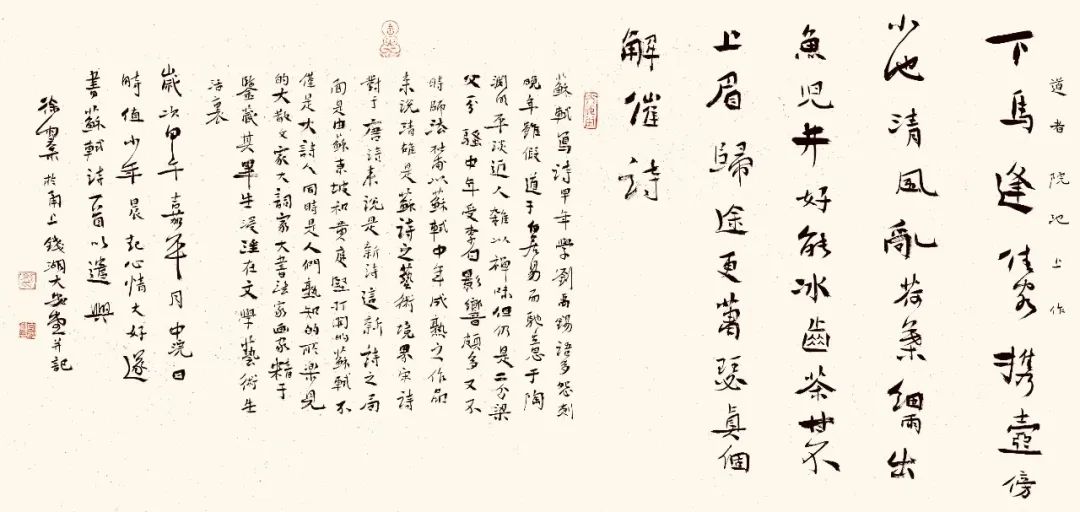 道者院池上作
下馬逢佳客携壺傍
小池清風亂荷葉細雨出
魚兒井好能冰齒茶甘不
上眉歸途更蕭瑟真個
解催詩
蘇軾寫詩早年學劉禹錫語多怨刻
晚年雖假道于白居易而馳意于陶
淵明平淡近人雜以禅味但仍是二分梁
父分騷中年受李白影響頗多又不
時師法杜甫以蘇軾中年成熟之作品
来說清雄是蘇詩之藝術境界宋詩
對于唐詩来說是新詩這新詩之局
面是由蘇東坡和黄庭堅打開的蘇軾不
僅是大詩人同時是人們熟知的所樂見
的大散文家大詞家大書法家画家精于
鑒藏其畢生浸淫在文學藝術生
活裏
歲次甲午嘉平月中浣日
時值少年晨起心情大好遂
書蘇軾詩百首以遣興
徐於甬上錢湖大堂并記